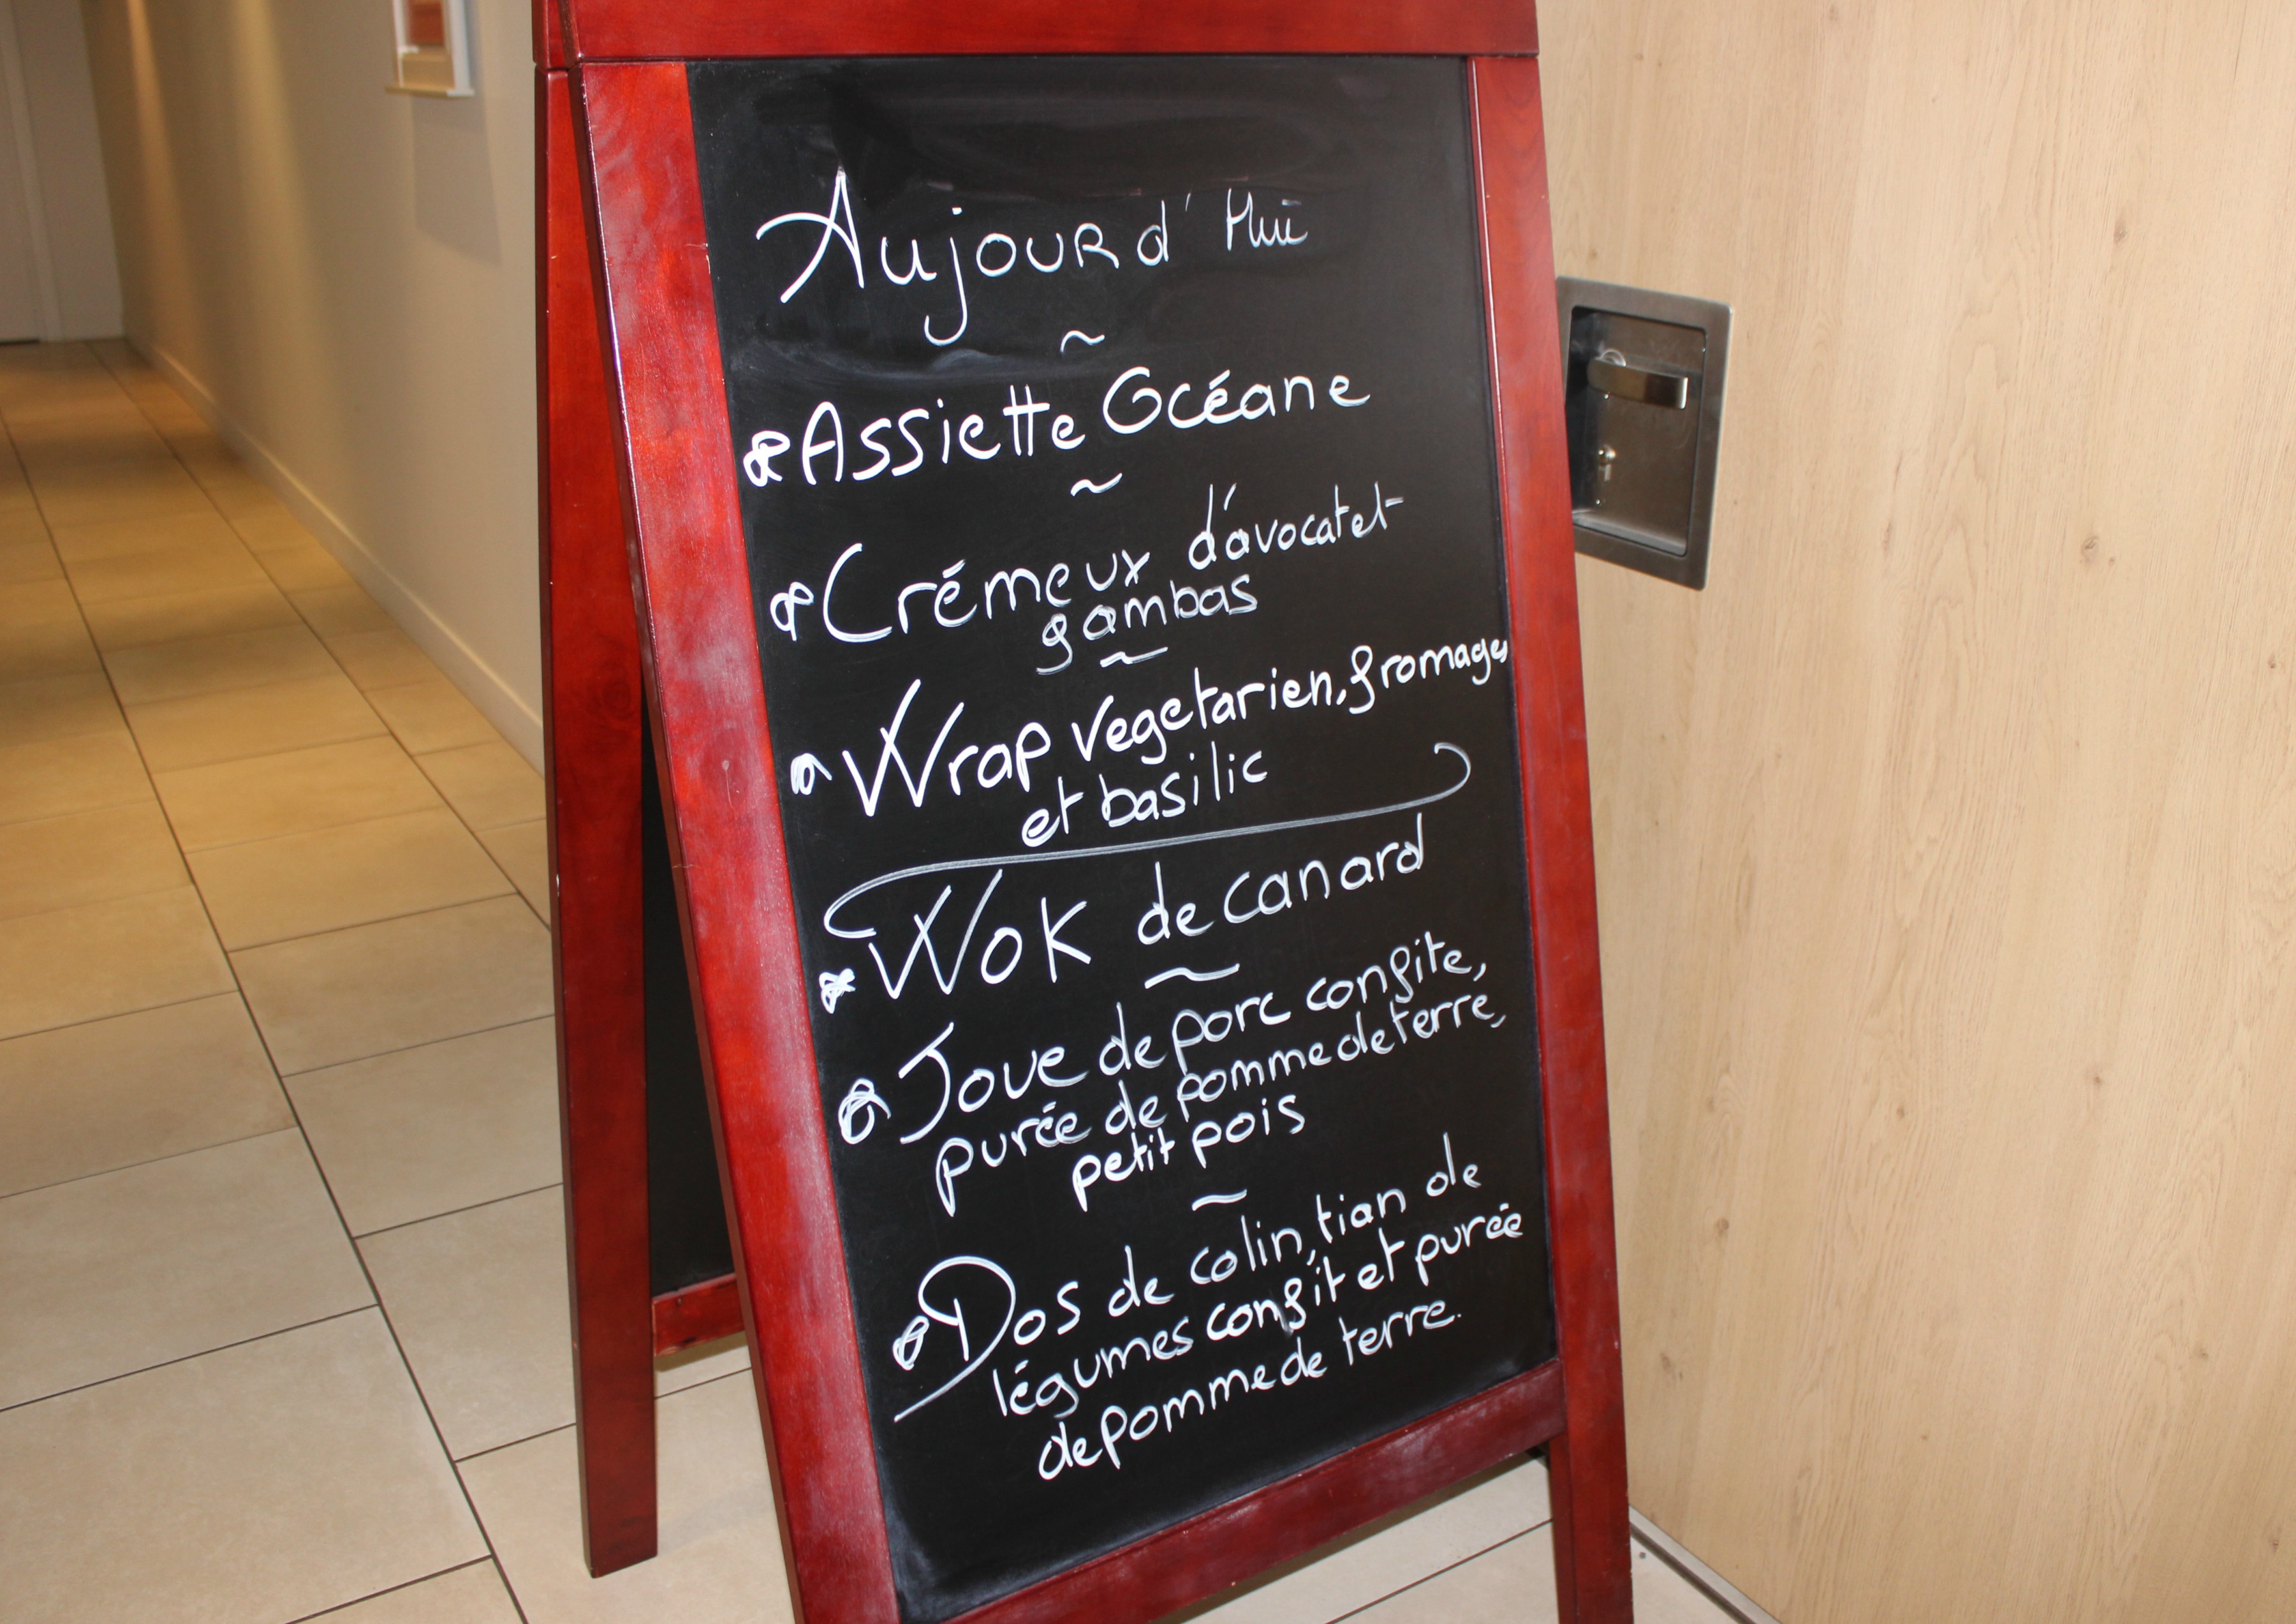 Aujourd'Hui
~
Assiette Océane
~
Crémeux d'avocat et
gambas
~
Wrap vegetarien, fromages
et basilic
Wok de canard
~
Joue de porc confite,
purée de pomme de terre,
petit pois
~
Dos de colin, tian de
légumes confit et purée
de pomme de terre.